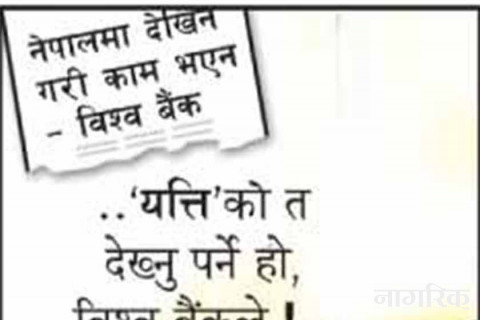 नेपालमा देखिने
गरी काम भएन
- विश्व बैंक
..‘यत्ति’को त
देख्नु पर्ने हो,
विश्व बैंकले !
नागरिक